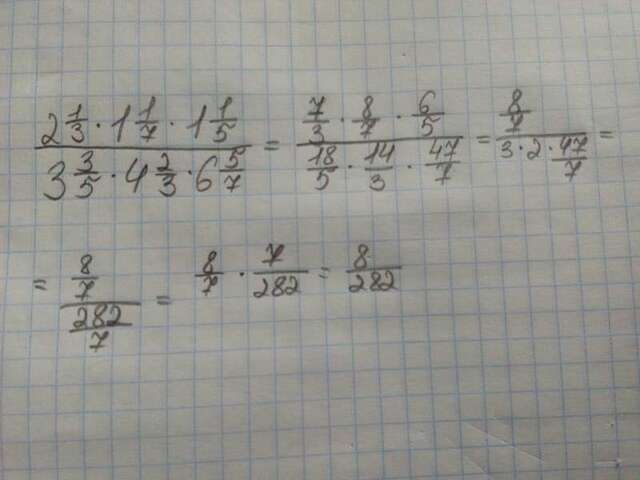 2 1/3 · 1 1/7 · 1 1/5 / 3 3/5 · 4 2/3 · 6 5/7 = 7/3 · 8/7 · 6/5 / 18/5 · 14/3 · 47/7 = 8/7 / 3 · 2 · 47/7 =
= 8/7 / 282/7 = 8/7 · 7/282 = 8/282